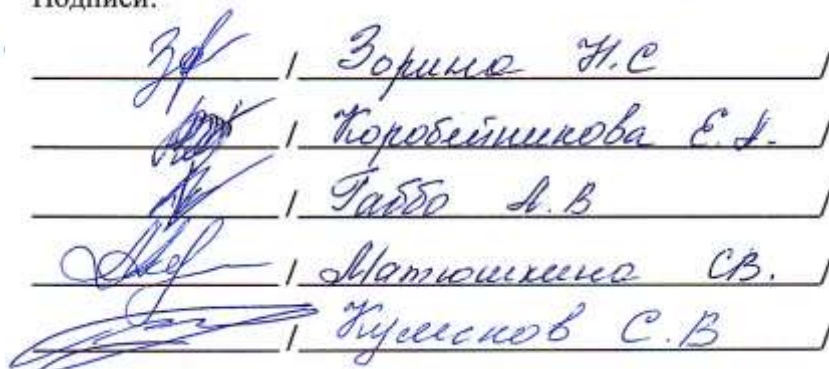 Подписи:
/ Зорина Н.С /
/ Коробейникова Е.Н. /
/ Габбо А.В /
/ Матюшкина С.В. /
/ С.В /